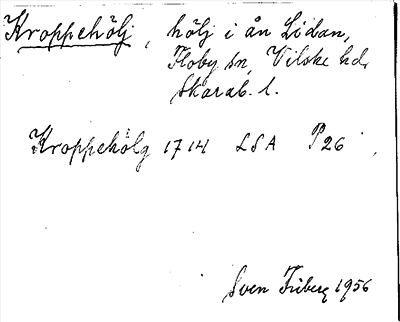 Kroppehölj, hölj i ån Lidan,
Floby sn, Vilske hd,
Skarab. l.
Kroppehölg 1714 LSA P26
Sven Friberg 1956